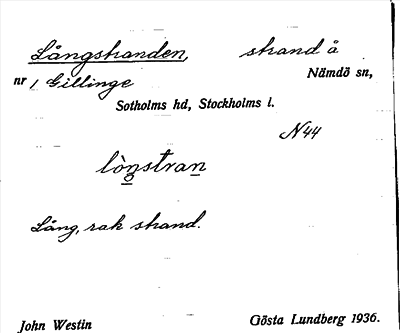 Långstranden, strand å
nr 1 Gillinge Nämdö sn,
Sotholms hd, Stockholms l.
N44
lònstran
Lång, rak strand.
John Westin Gösta Lundberg 1936.